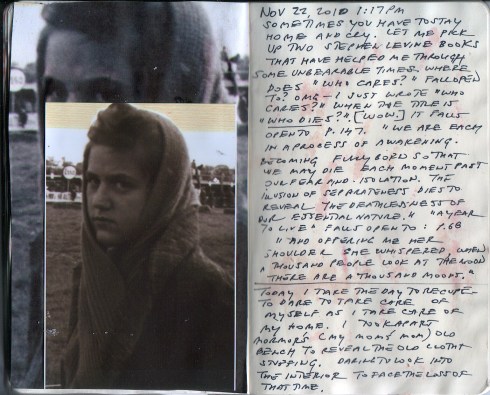 NOV 22, 2010 1:17PM
SOMETIMES YOU HAVE TO STAY
HOME AND CRY. LET ME PICK
UP TWO STEPHEN LEVINE BOOKS
THAT HAVE HELPED ME THROUGH
SOME UNBEARABLE TIMES. WHERE
DOES "WHO CARES?" FALL OPEN
TO? OMG - I JUST WROTE "WHO
CARES?" WHEN THE TITLE IS
"WHO DIES?". [WOW.] IT FALLS
OPEN TO P. 147. "WE ARE EACH
IN A PROCESS OF AWAKENING.
BECOMING FULLY BORN SO THAT
WE MAY DIE EACH MOMENT PAST
OUR FEAR AND ISOLATION. THE
ILLUSION OF SEPARATENESS DIES TO
REVEAL THE DEATHLESSNESS OF
OUR ESSENTIAL NATURE." "A YEAR
TO LIVE" FALLS OPEN TO: P. 68
"AND OFFERING ME HER
SHOULDER SHE WHISPERED, WHEN
A THOUSAND PEOPLE LOOK AT THE MOON
THERE ARE A THOUSAND MOONS."
TODAY I TAKE THE DAY TO RECUPE
TO DARE TO TAKE CARE OF
MYSELF AS I TAKE CARE OF
MY HOME. I TOOK APART
MERMOR'S (MY MOM'S MOM) OLD
BENCH TO REVEAL THE OLD CLOTH
STUFFING. DARING TO LOOK INTO
THE INTERIOR TO FACE THE LOSS OF
THAT TIME.